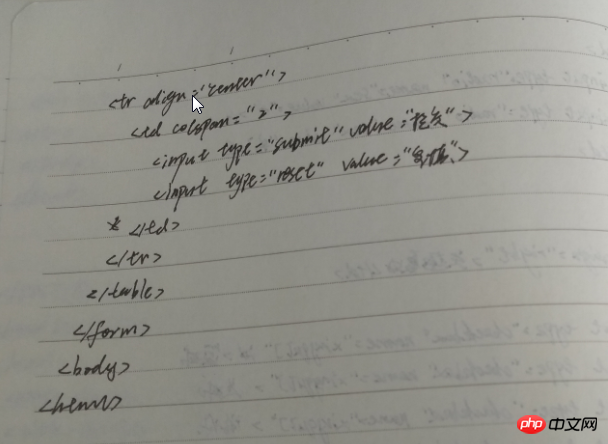 <tr align="center">
<td colspan="2">
<input type="submit" value="提交">
<input type="reset" value="重填">
* </td>
</tr>
</table>
</form>
<body>
<html>
php 中文网